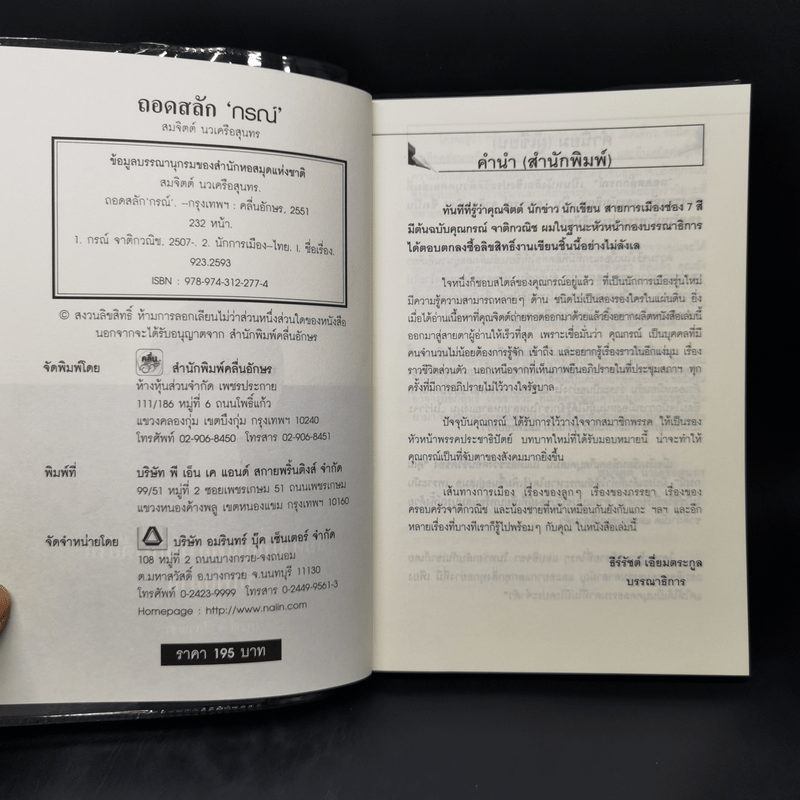 ถอดสลัก 'กรณ์'
สมจิตต์ นวเครือสุนทร
ข้อมูลบรรณานุกรมของสำนักหอสมุดแห่งชาติ
สมจิตต์ นวเครือสุนทร.
ถอดสลัก'กรณ์'. --กรุงเทพฯ : คลื่นอักษร, 2551
232 หน้า.
1. กรณ์ จาติกวณิช, 2507-. 2. นักการเมือง-ไทย. I. ชื่อเรื่อง.
923.2593
ISBN : 978-974-312-277-4
© สงวนลิขสิทธิ์ ห้ามการลอกเลียนไม่ว่าส่วนหนึ่งส่วนใดของหนังสือ
นอกจากจะได้รับอนุญาตจาก สำนักพิมพ์คลื่นอักษร
จัดพิมพ์โดย สำนักพิมพ์คลื่นอักษร
ห้างหุ้นส่วนจำกัด เพชรประกาย
111/186 หมู่ที่ 6 ถนนโพธิ์แก้ว
แขวงคลองกุ่ม เขตบึงกุ่ม กรุงเทพฯ 10240
โทรศัพท์ 02-906-8450 โทรสาร 02-906-8451
พิมพ์ที่ บริษัท พี เอ็น เค แอนด์ สกายพริ้นติงส์ จำกัด
99/51 หมู่ที่ 2 ซอยเพชรเกษม 51 ถนนเพชรเกษม
แขวงหนองค้างพลู เขตหนองแขม กรุงเทพฯ 10160
จัดจำหน่ายโดย บริษัท อมรินทร์ บุ๊ค เซ็นเตอร์ จำกัด
108 หมู่ที่ 2 ถนนบางกรวย-จงถนอม
ต.มหาสวัสดิ์ อ.บางกรวย จ.นนทบุรี 11130
โทรศัพท์ 0-2423-9999 โทรสาร 0-2449-9561-3
Homepage : http://www.naiin.com
ราคา 195 บาท
คำนำ (สำนักพิมพ์)
ทันทีที่รู้ว่าคุณจิตต์ นักข่าว นักเขียน สายการเมืองช่อง 7 สี
มีต้นฉบับคุณกรณ์ จาติกวณิช ผมในฐานะหัวหน้ากองบรรณาธิการ
ได้ตอบตกลงซื้อลิขสิทธิ์งานเขียนชิ้นนี้อย่างไม่ลังเล
ใจหนึ่งก็ชอบสไตล์ของคุณกรณ์อยู่แล้ว ที่เป็นนักการเมืองรุ่นใหม่
มีความรู้ความสามารถหลายๆ ด้าน ชนิดไม่เป็นสองรองใครในแผ่นดิน ยิ่ง
เมื่อได้อ่านเนื้อหาที่คุณจิตต์ถ่ายทอดออกมาด้วยแล้วยิ่งอยากผลิตหนังสือเล่มนี้
ออกมาสู่สายตาผู้อ่านให้เร็วที่สุด เพราะเชื่อมั่นว่า คุณกรณ์ เป็นบุคคลที่มี
คนจำนวนไม่น้อยต้องการรู้จัก เข้าถึง และอยากรู้เรื่องราวในอีกแง่มุม เรื่อง
ราวชีวิตส่วนตัว นอกเหนือจากที่เห็นภาพยืนอภิปรายในที่ประชุมสภาฯ ทุก
ครั้งที่มีการอภิปรายไม่ไว้วางใจรัฐบาล
ปัจจุบันคุณกรณ์ ได้รับการไว้วางใจจากสมาชิกพรรค ให้เป็นรอง
หัวหน้าพรรคประชาธิปัตย์ บทบาทใหม่ที่ได้รับมอบหมายนี้ น่าจะทำให้
คุณกรณ์เป็นที่จับตาของสังคมมากยิ่งขึ้น
เส้นทางการเมือง เรื่องของลูกๆ เรื่องของภรรยา เรื่องของ
ครอบครัวจาติกวณิช และน้องชายที่หน้าเหมือนกันยังกับแกะ ฯลฯ และอีก
หลายเรื่องที่บางทีเราก็รู้ไปพร้อมๆ กับคุณ ในหนังสือเล่มนี้
ธีร์รัชต์ เอี่ยมตระกูล
บรรณาธิการ